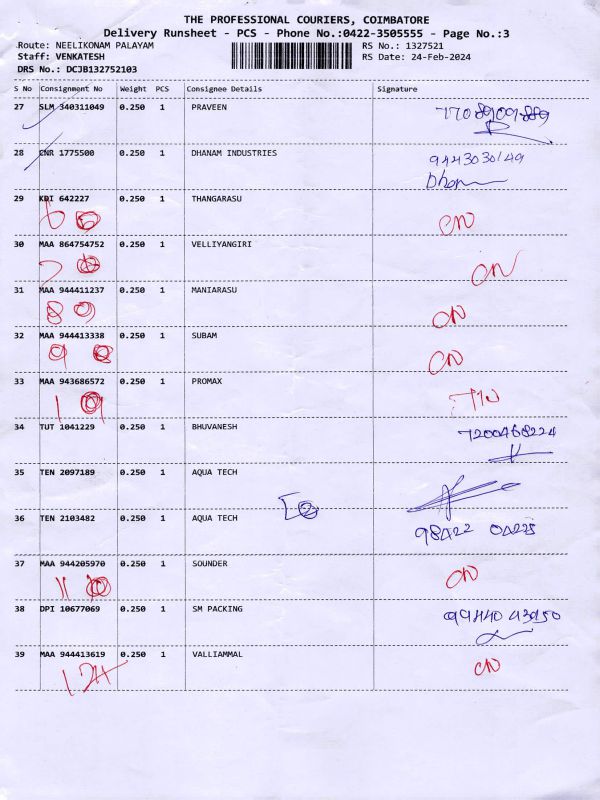 THE PROFESSIONAL COURIERS, COIMBATORE
Delivery Runsheet - PCS - Phone No.:0422-3505555 - Page No.:3
Route: NEELIKONAM PALAYAM RS No.: 1327521
Staff: VENKATESH RS Date: 24-Feb-2024
DRS No.: DCJB132752103
S No Consignment No Weight PCS Consignee Details Signature
27 SLM 340311049 0.250 1 PRAVEEN
28 CNR 1775500 0.250 1 DHANAM INDUSTRIES 9443030149
Dhan
29 KDI 642227 0.250 1 THANGARASU
6 6 CN
30 MAA 864754752 0.250 1 VELLIYANGIRI
7 CN
31 MAA 944411237 0.250 1 MANIARASU
8 CN
32 MAA 944413338 0.250 1 SUBAM
9 CN
33 MAA 943686572 0.250 1 PROMAX
34 TUT 1041229 0.250 1 BHUVANESH 7200468224
35 TEN 2097189 0.250 1 AQUA TECH
36 TEN 2103482 0.250 1 AQUA TECH
98422 04225
37 MAA 944205970 0.250 1 SOUNDER
11 CN
38 DPI 10677069 0.250 1 SM PACKING
39 MAA 944413619 0.250 1 VALLIAMMAL CN